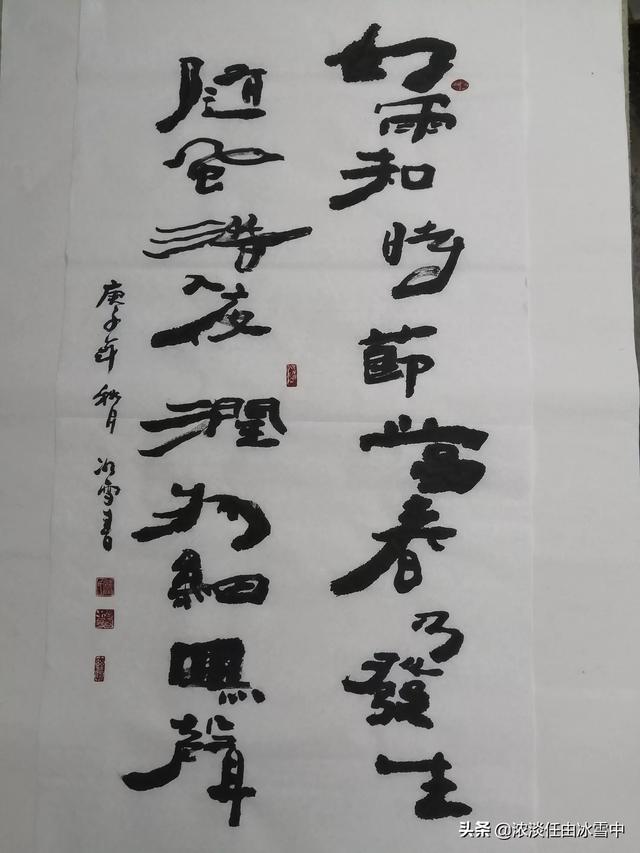 如雨知時節當春乃發生
隨風潛入夜潤物細無聲
庚子年秋月冰雪書
头条 @浓淡任由冰雪中